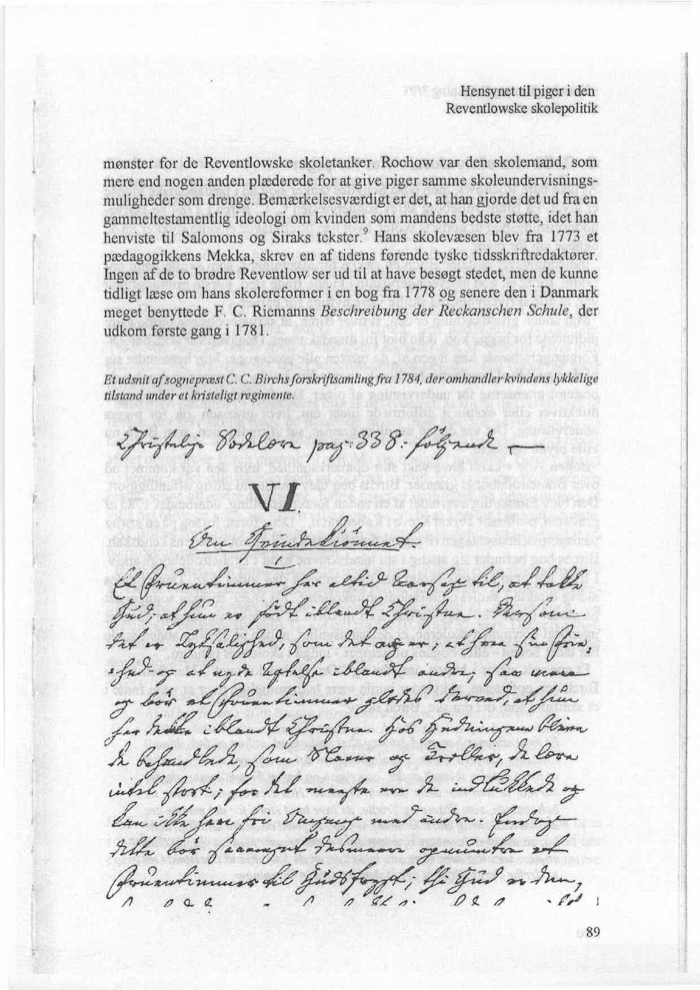 Hensynet til piger i den
Reventlowske skolepolitik
mønster for de Reventlowske skoletanker. Rochow var den skolemand, som
mere end nogen anden plæderede for at give piger samme skoleundervisnings-
muligheder som drenge. Bemærkelsesværdigt er det, at han gjorde det ud fra en
gammeltestamentlig ideologi om kvinden som mandens bedste støtte, idet han
henviste til Salomons og Siraks tekster.⁹ Hans skolevæsen blev fra 1773 et
pædagogikkens Mekka, skrev en af tidens førende tyske tidsskriftredaktører.
Ingen af de to brødre Reventlow ser ud til at have besøgt stedet, men de kunne
tidligt læse om hans skolereformer i en bog fra 1778 og senere den i Danmark
meget benyttede F. C. Riemanns Beschreibung der Reckanschen Schule, der
udkom første gang i 1781.
Et udsnit af sognepræst C. C. Birchs forskriftsamling fra 1784, der omhandler kvindens lykkelige
tilstand under et kristeligt regimente.
Christelige Sædelære pag: 338: følgende
VI.
Om Qvindekiönnet.
1
Et Fruentimmer har altid Aarsag til, at takke
Gud; at hun er födt iblandt Christne. Dersom
det er Lyksalighed, som det og er; at have sin Frie-
hed og at nyde Agtelse iblandt andre; saa maae
og bör et Fruentimmer glædes derved, at hun
har dette iblandt Christne. Hos Hedningene blive
de behandlede, som Slaver og Træller, de lære
intet stort; for det meeste ere de indlukkede og
kan ikke have fri Omgang med andre. Endog
dette bör saameget desmeere opmuntre et
Fruentimmer til Gudsfrygt; thi Gud er den,
89